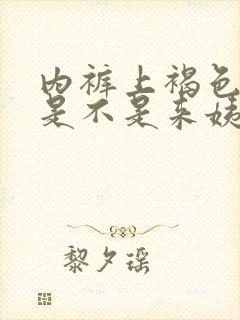 内裤上褐色
是不是来姨
黎夕瑶